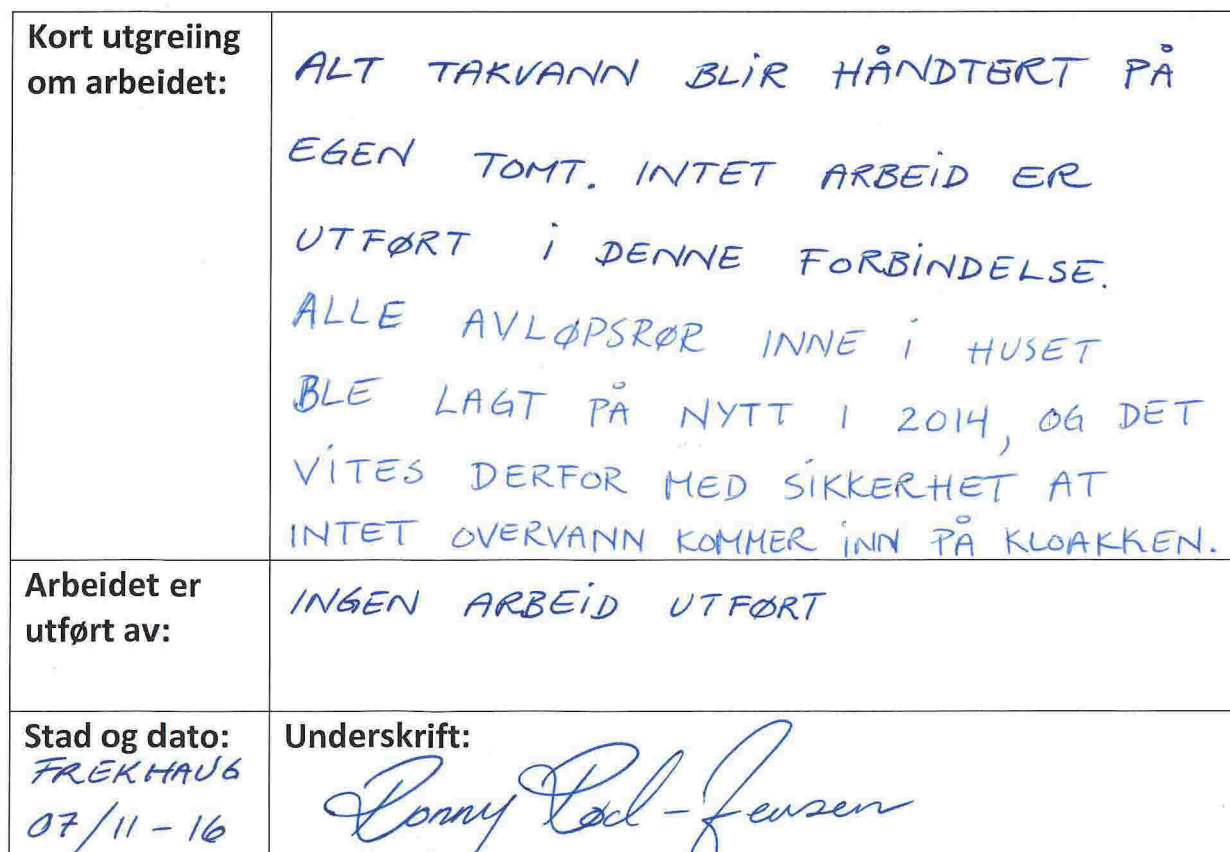 Kort utgreiing
om arbeidet:
ALT TAKVANN BLIR HÅNDTERT PÅ
EGEN TOMT. INTET ARBEID ER
UTFØRT i DENNE FORBINDELSE.
ALLE AVLØPSRØR INNE i HUSET
BLE LAGT PÅ NYTT I 2014, OG DET
VITES DERFOR MED SIKKERHET AT
INTET OVERVANN KOMMER INN PÅ KLOAKKEN.
Arbeidet er
utført av:
INGEN ARBEID UTFØRT
Stad og dato:
FREKHAUG
07/11-16
Underskrift:
Ronny Rød-Jensen